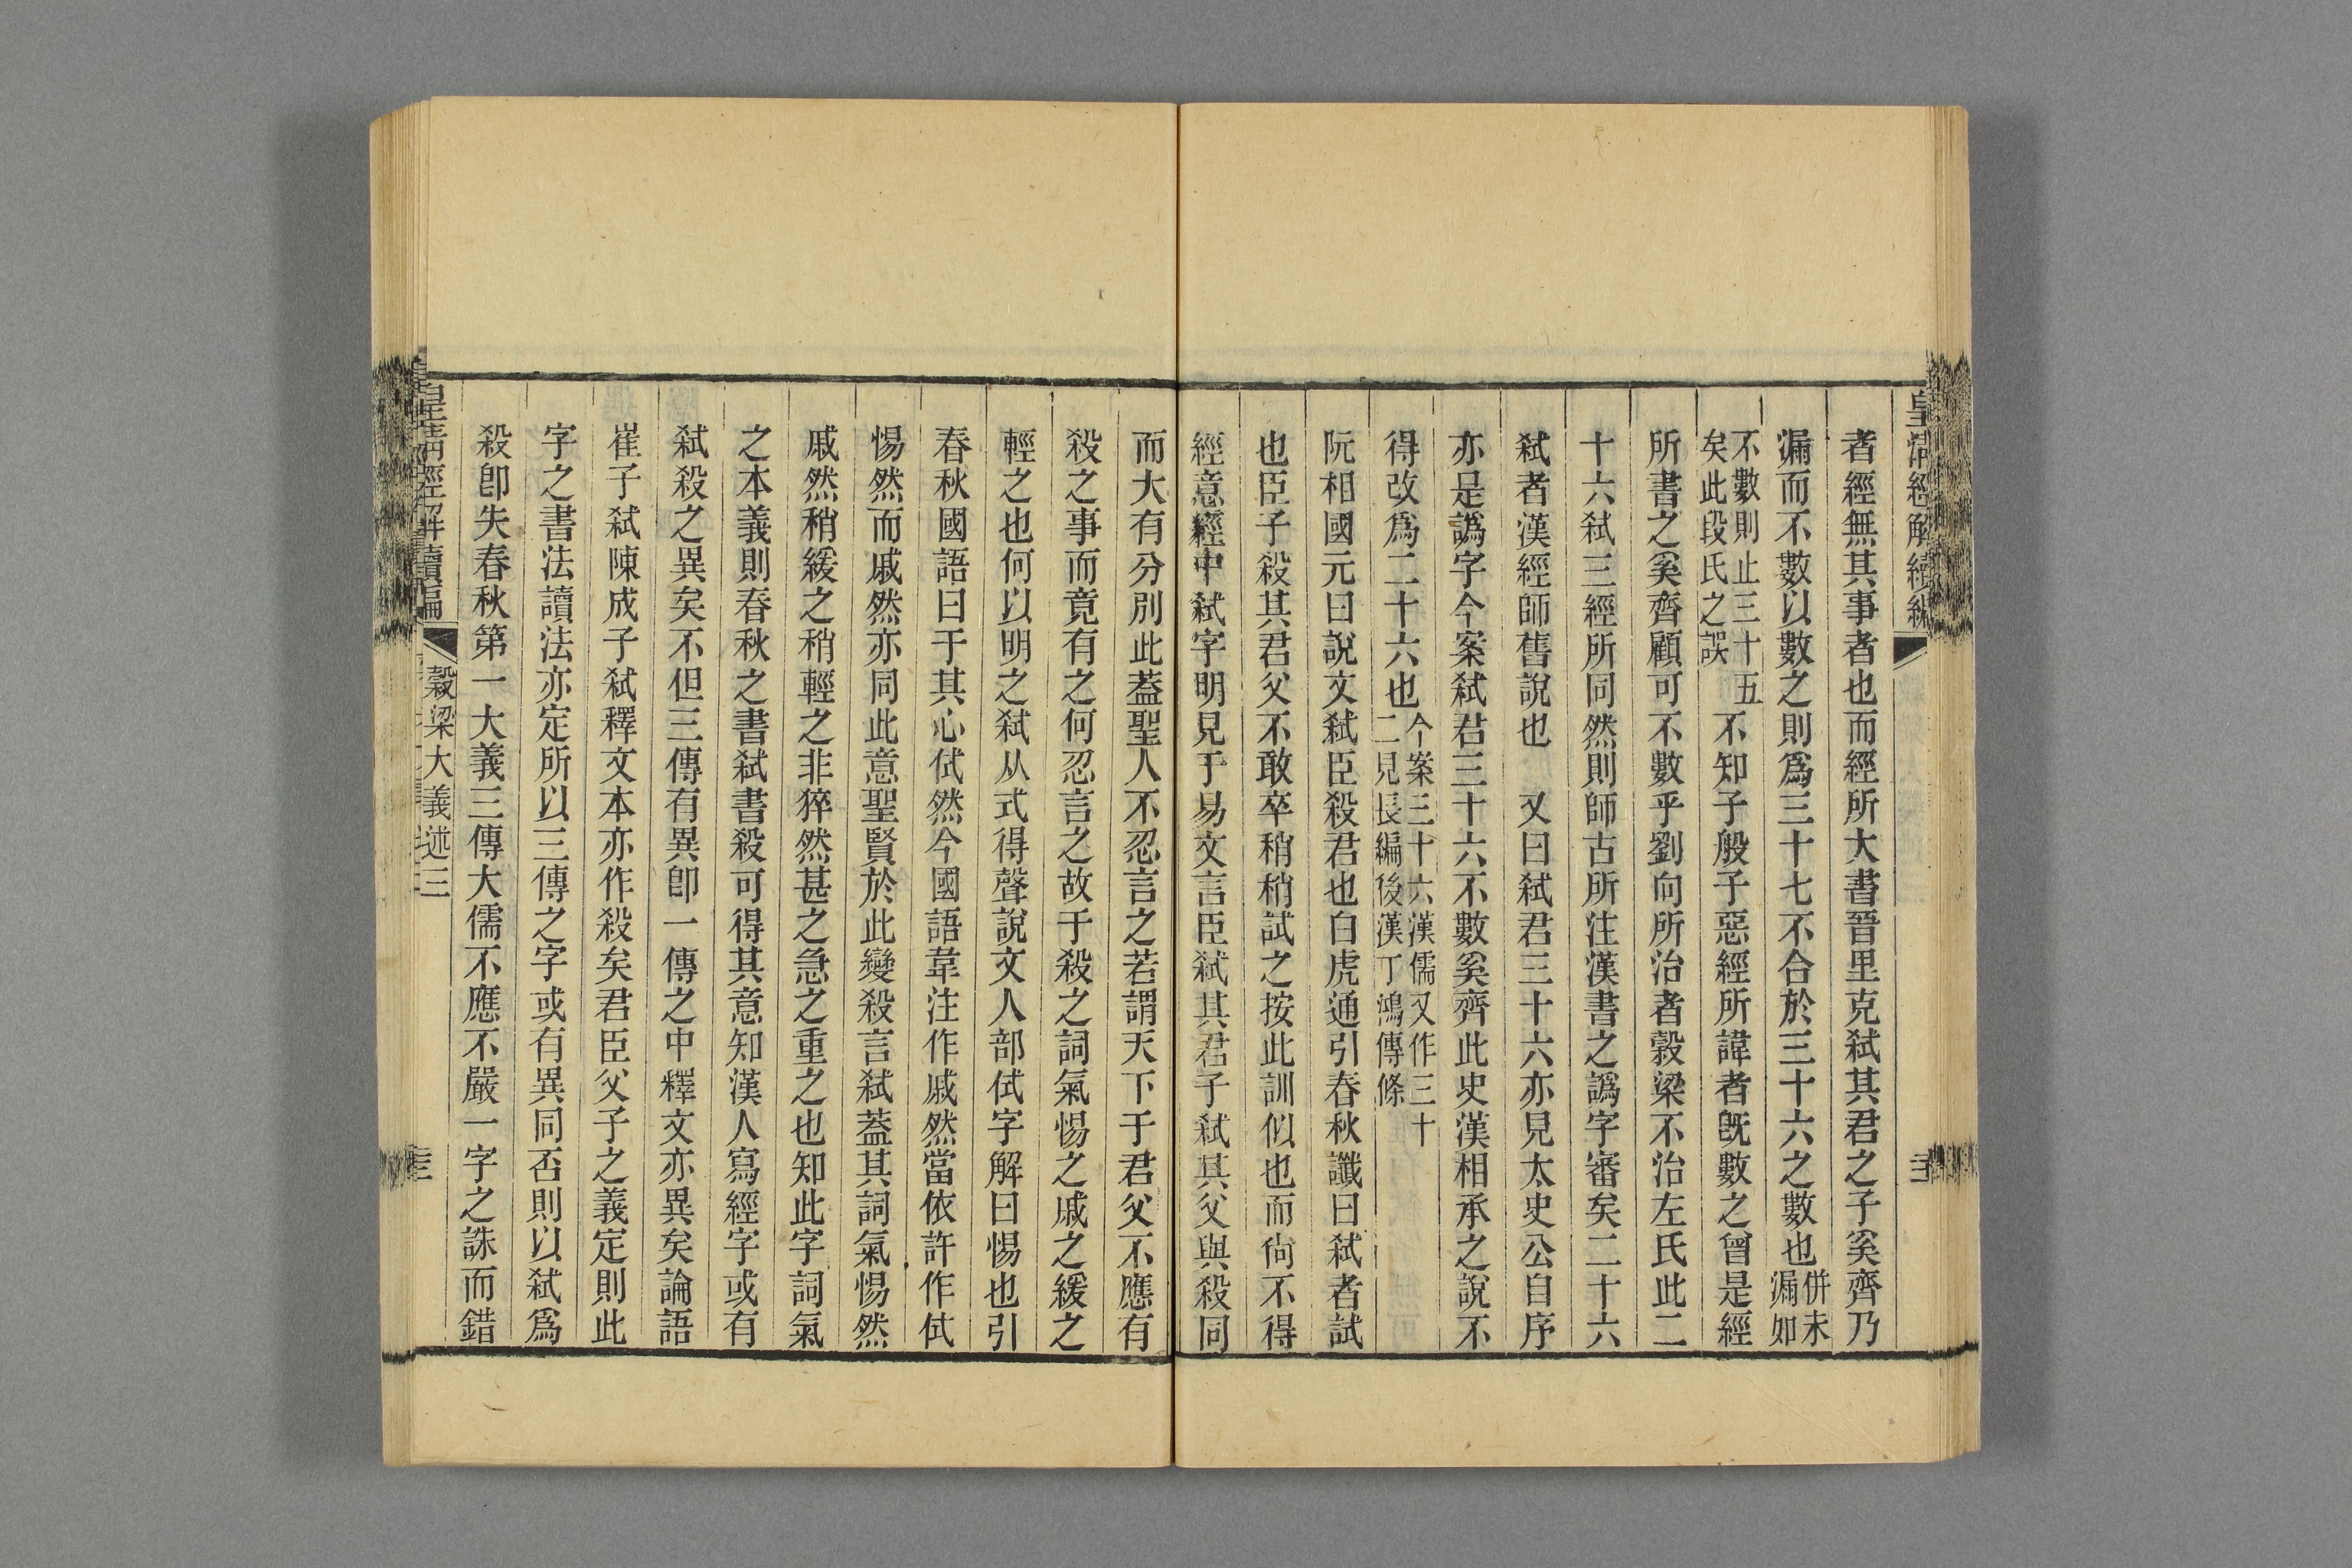 皇清經解續編
者經無其事者也而經所大書晉里克弒其君之子奚齊乃
漏而不數以數之則爲三十七不合於三十六之數也併未漏如
不數則止三十五矣此段氏之誤不知子般子惡經所諱者旣數之曾是經
所書之奚齊顧可不數乎劉向所治者穀梁不治左氏此二
十六弒三經所同然則師古所注漢書之譌字審矣二十六
弒者漢經師舊說也 又曰弒君三十六亦見太史公自序
亦是譌字今案弒君三十六不數奚齊此史漢相承之說不
得改爲二十六也今案三十六漢儒又作三十二見長編後漢丁鴻傳條
阮相國元曰說文弒臣殺君也白虎通引春秋讖曰弒者試
也臣子殺其君父不敢卒稍稍試之按此訓似也而尙不得
經意經中弒字明見于易文言臣弒其君子弒其父與殺同
而大有分別此葢聖人不忍言之若謂天下于君父不應有
殺之事而竟有之何忍言之故于殺之詞氣惕之戚之緩之
輕之也何以明之弒从式得聲說文人部侙字解曰惕也引
春秋國語曰于其心侙然今國語韋注作戚然當依許作侙
惕然而戚然亦同此意聖賢於此變殺言弒葢其詞氣惕然
戚然稍緩之稍輕之非猝然甚之急之重之也知此字詞氣
之本義則春秋之書弒書殺可得其意知漢人寫經字或有
弒殺之異矣不但三傳有異卽一傳之中釋文亦異矣論語
崔子弒陳成子弒釋文本亦作殺矣君臣父子之義定則此
字之書法讀法亦定所以三傳之字或有異同否則以弒爲
殺卽失春秋第一大義三傳大儒不應不嚴一字之誅而錯
皇淸經解續編
穀梁大義述三